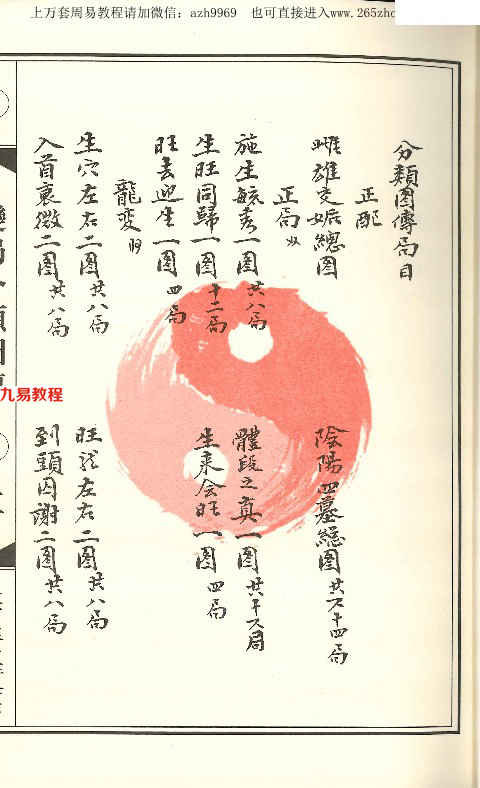 上万套周易教程请加微信：azh9969 也可直接进入www.265zho
分類图傳局目
正配
雌雄交媾總图
陰陽四墓總图 共六十四局
正局
施生毓秀一图 共八局
體段之真一图 共十六局
生旺同歸一图 十二局
生来会旺一图 四局
旺去迎生一图 四局
龍变
生穴左右二图 共八局
旺龙左右二图 共八局
入首裏微二图 共八局
到頭囚謝二图 共八局
九易教程